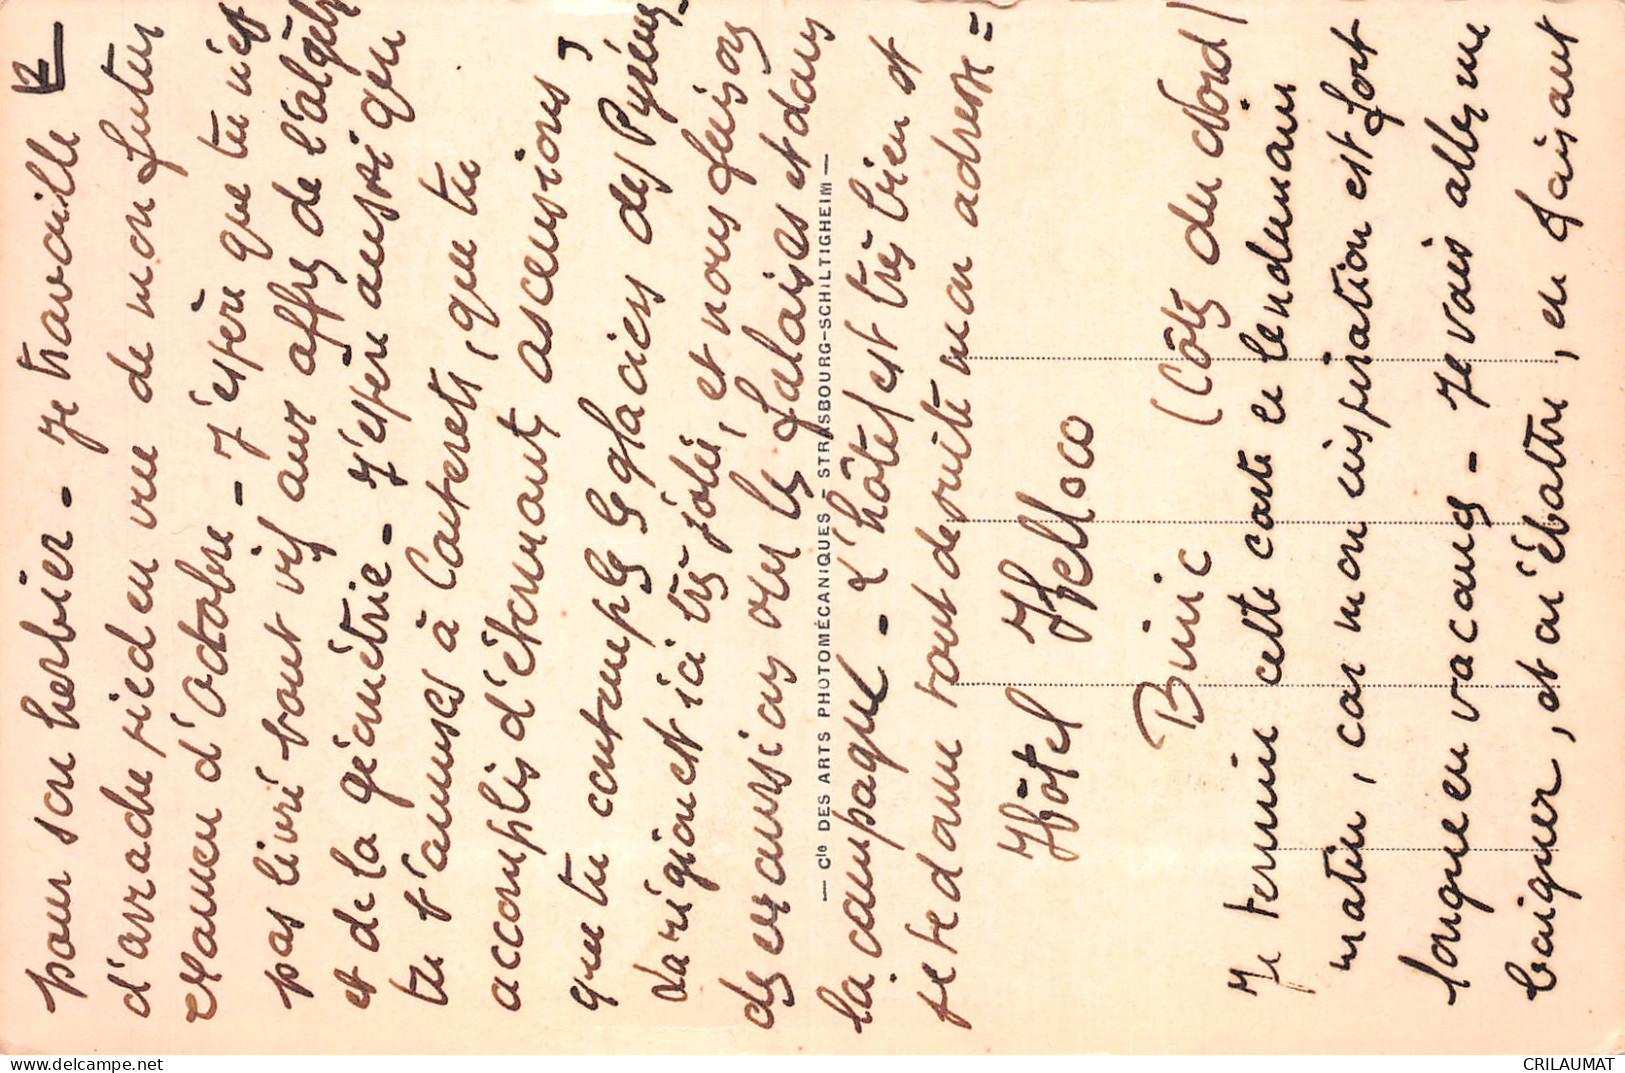 pour son herbier - Je travaille
d'arrache pied en vue de mon futur
examen d'Octobre - J'espère que tu n'es
pas livré tout vif aux affres de l'algèbre
et de la géométrie - J'espère aussi que
tu t'amuses à Cauterets, que tu
accomplis d'étonnants ascensions,
que tu contemples les glaciers des Pyrénées
La région est ici très jolie, et nous faisons
des excursions sur les falaises et dans
la campagne - L'hôtel est très bien et
je te donne tout de suite mon adresse =
Hôtel Hellsco
Binic (Côtes du Nord)
Je termine cette carte le lendemain
matin, car mon inspiration est fort
longue en vacances - Je vais aller me
baigner, et m'ébattre, en faisant
— Cie DES ARTS PHOTOMÉCANIQUES - STRASBOURG-SCHILTIGHEIM —
CRILAUMAT